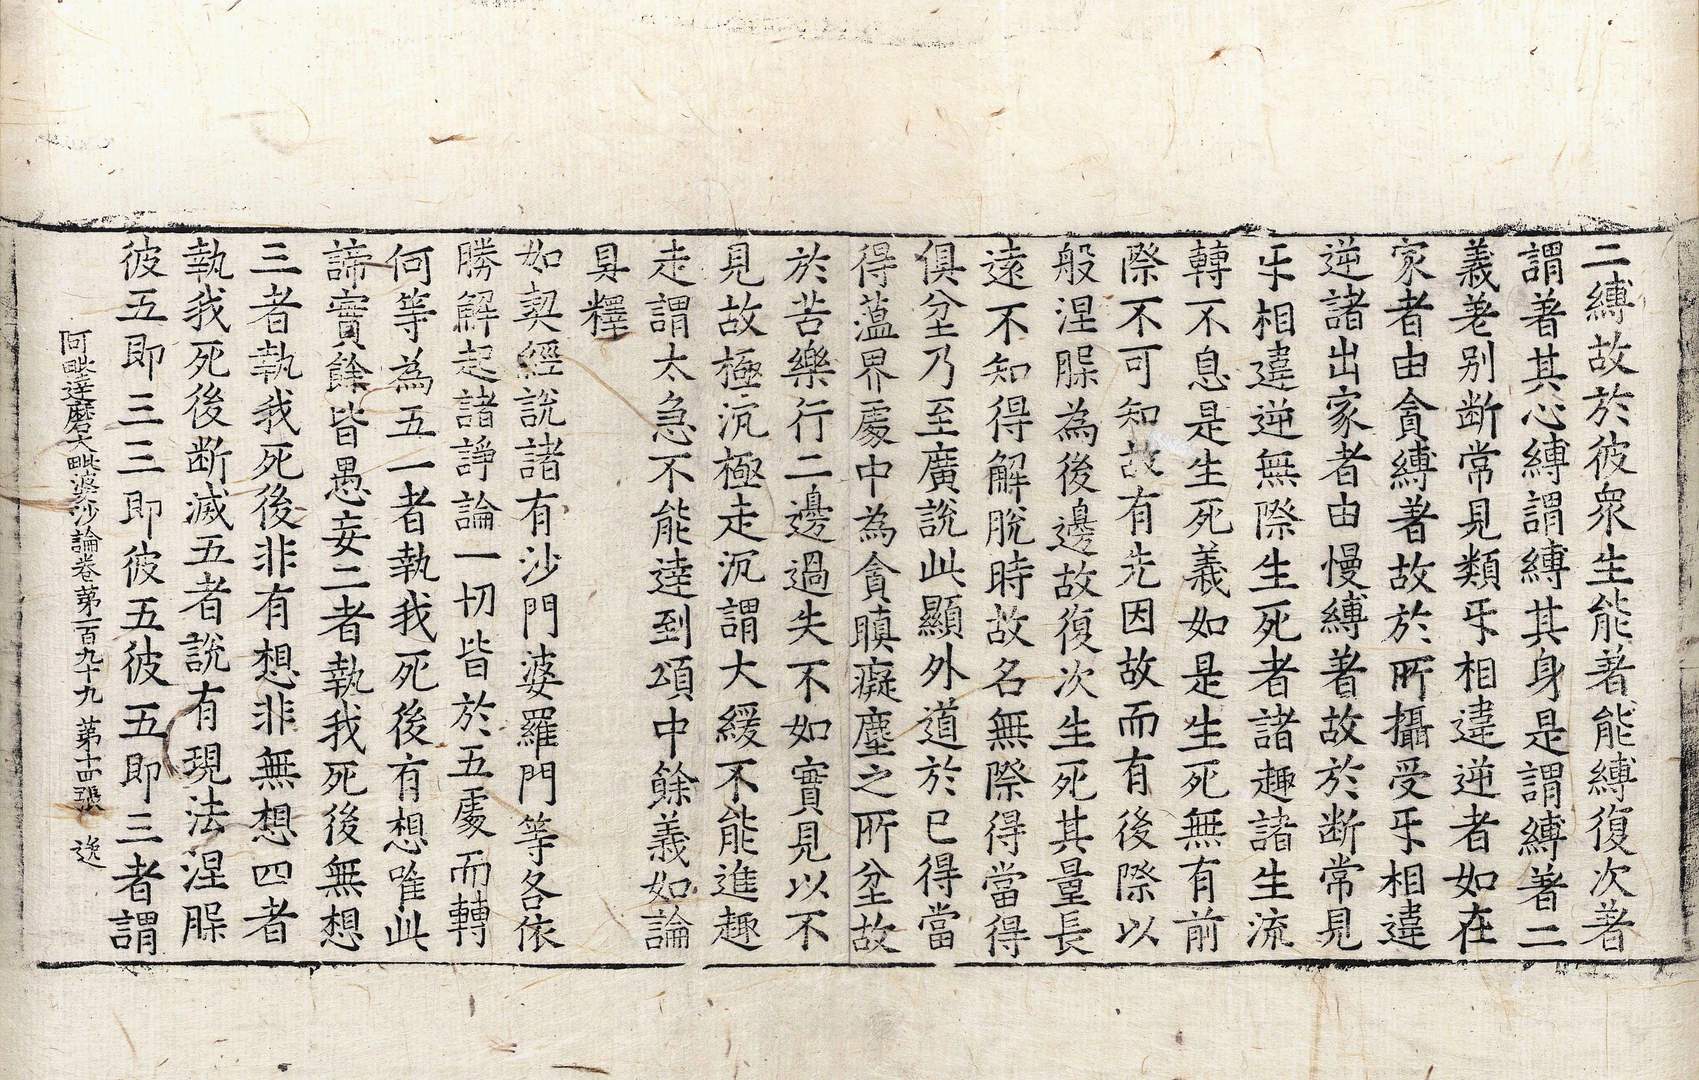 二縛故於彼衆生能著能縛復次著
謂著其心縛謂縛其身是謂縛著二
義差別斷常見類㸦相違逆者如在
家者由貪縛著故於所攝受㸦相違
逆諸出家者由慢縛著故於斷常見
㸦相違逆無際生死者諸趣諸生流
轉不息是生死義如是生死無有前
際不可知故有先因故而有後際以
般涅槃為後邊故復次生死其量長
遠不知得解脫時故名無際得當得
俱坌乃至廣說此顯外道於已得當
得蘊界處中為貪瞋癡塵之所坌故
於苦樂行二邊過失不如實見以不
見故極沉極走沉謂大緩不能進趣
走謂太急不能達到頌中餘義如論
具釋
如契經說諸有沙門婆羅門等各依
勝解起諸諍論一切皆於五處而轉
何等為五一者執我死後有想唯此
諦實餘皆愚妄二者執我死後無想
三者執我死後非有想非無想四者
執我死後斷滅五者說有現法涅槃
彼五即三三即彼五彼五即三者謂
阿毗達磨大毗婆沙論卷第一百九十九 第十四張 逸